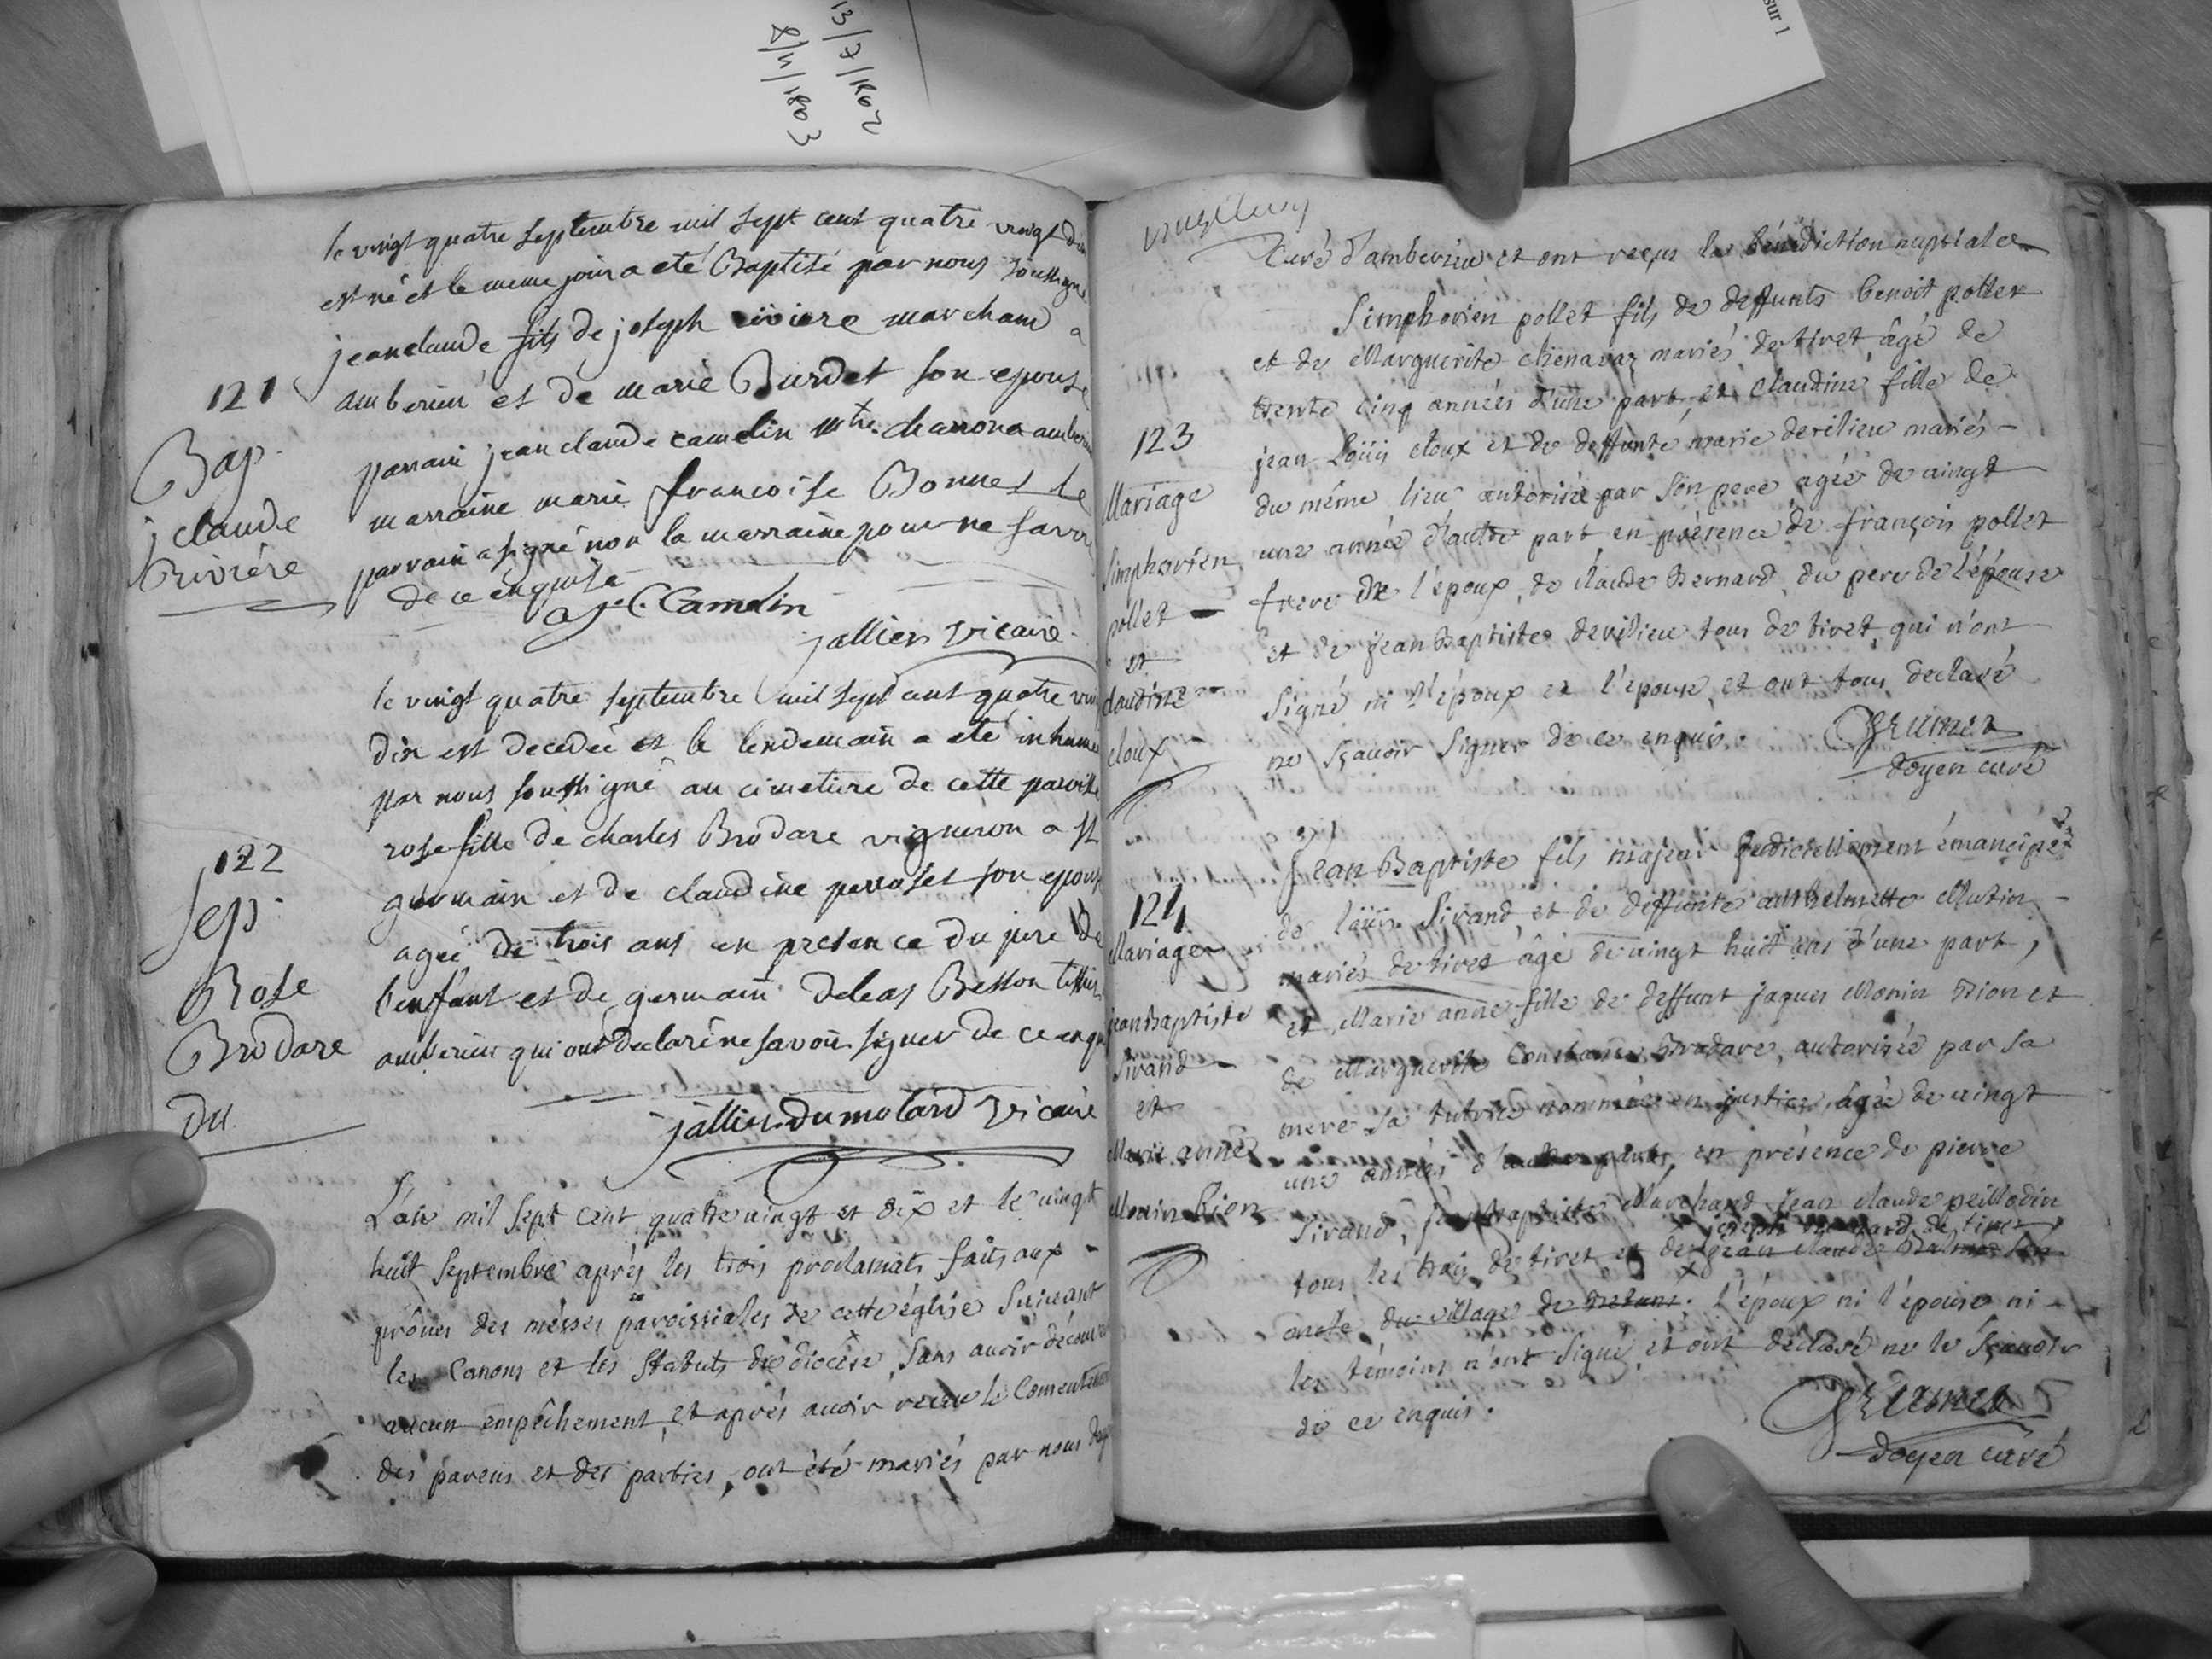 13/7/1802
8/4/1803
sur 1
le vingt quatre septembre mil sept cent quatre vingt dix
est né et le meme jour a eté Baptisé par nous soussigné
jean claude fils de joseph riviere marchand a
amberieu et de marie Burdet son epouse
parrain jean claude camelin mtre charron a amberieu
marraine marie francoise Bonnet le
parrain a signé non la marraine pour ne savoir
de ce enquise
121
Bap.
j claude
Rivière
j C. Camelin
jallier vicaire
le vingt quatre septembre mil sept cent quatre vin
dix est decedée et le lendemain a eté inhumé
par nous soussigné au cimetiere de cette paroisse
rose fille de charles Brodare vigneron a st
germain et de claudine perroset son epouse
agée de trois ans en presence du pere de
l'enfant et de germain deleas Besson tissier
amberieu qui ont declaré ne savoir signer de ce enqu
122
sep.
Rose
Brodare
du
jallier dumolard vicaire
L'an mil sept cent quatre vingt et dix et le vingt
huit septembre aprés les trois proclamats faits aux
prônes des messes paroissiales de cette église suivant
les Canons et les statuts du diocèse, sans avoir découvert
aucun empêchement, et aprés avoir receu le Consentement
des parens et des parties, ont été mariés par nous doyen
Curé d'amberieu et ont reçu la bénédiction nuptiale
Simphorien pollet fils de deffunts benoit pollet
et de Marguerite chenavaz mariés de tiret âgé de
trente cinq années d'une part, et Claudine fille de
jean Loüis cloux et de deffunte marie derilieu mariés
du même lieu autorisée par son pere agée de vingt
une année d'autre part en présence de françois pollet
frere de l'époux, de claude Bernard, du pere de l'épouse
et de jean Baptiste derilieu tous de tiret, qui n'ont
signé ni l'époux et l'épouse, et ont tous declaré
ne sçavoir signer de ce enquis.
123
Mariage
Simphorien
pollet
et
claudine
cloux
doyen curé
Jean Baptiste fils majeur judiciellement émancipé
de loüis Sirand, et de deffunte anthelmette Mutin
mariés de tiret âgé de vingt huit ans d'une part,
et Marie anne fille de deffunt jaques Monin Rion et
de Marguerite Constance Brodare, autorisée par sa
mere sa tutrice nommée en justice, âgée de vingt
une années d'autre part, en présence de pierre
Sirand, jean Baptiste Marchand jean claude peillodin
joseph de tiret
tous les trois de tiret et de jean claude
oncle du village de . l'époux ni l'épouse ni
les témoins n'ont signé, et ont déclaré ne le sçavoir
de ce enquis.
124
Mariage
jean Baptiste
Sirand
et
Marie anne
Monin Rion
doyen curé